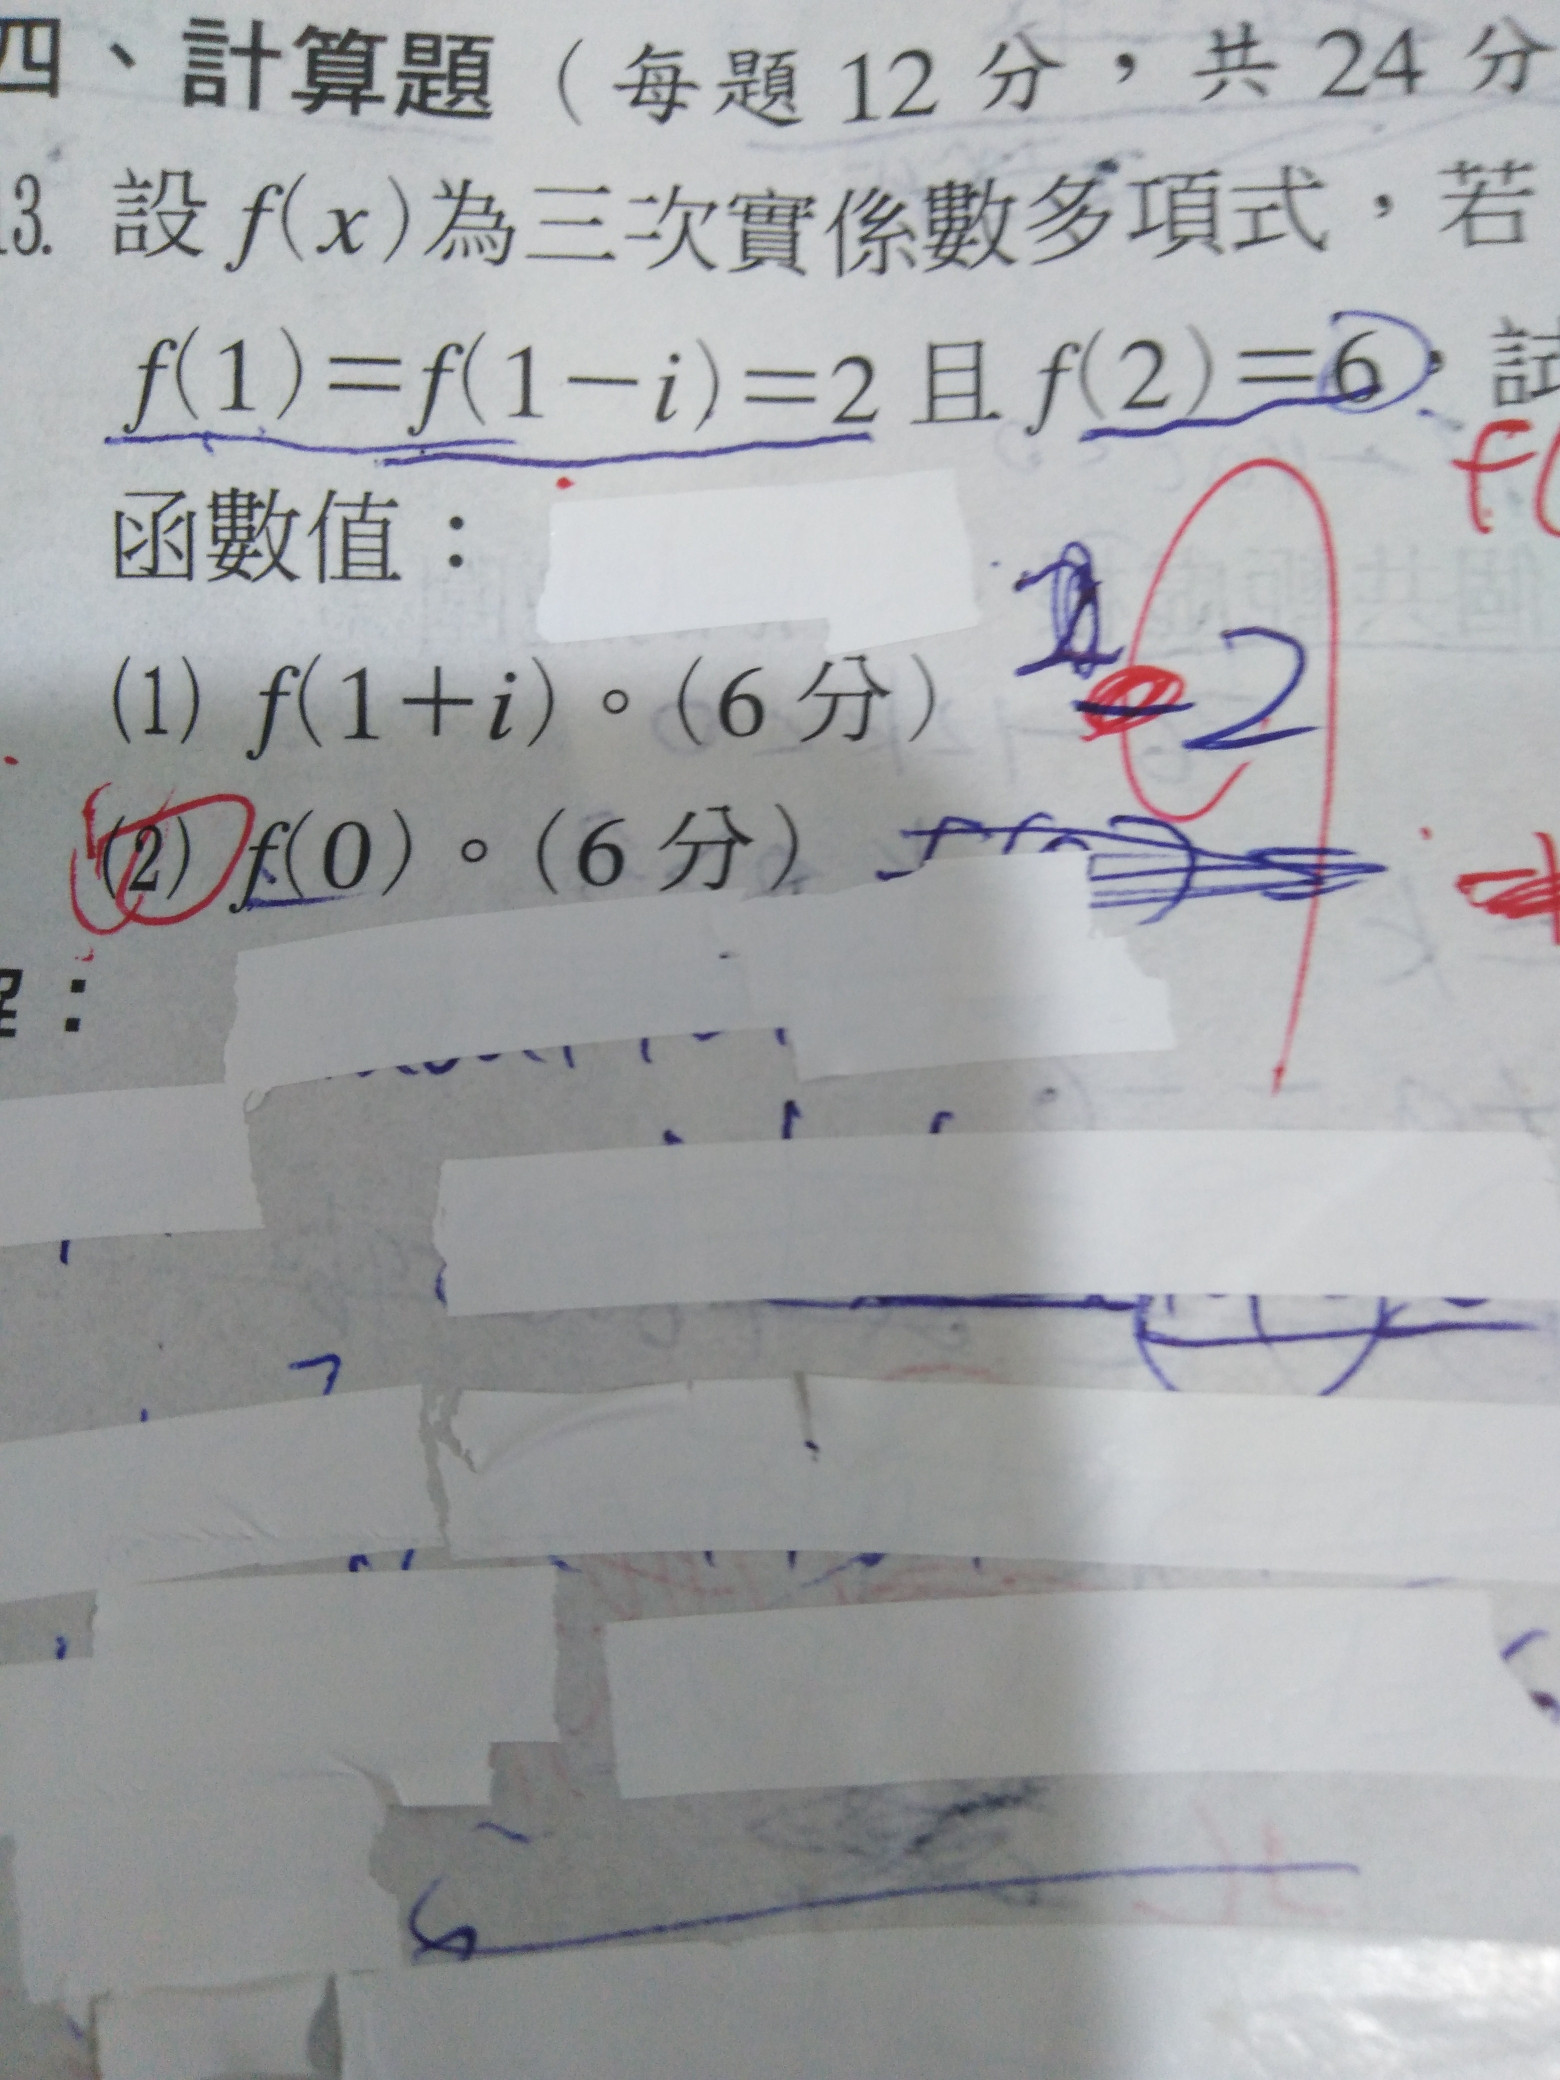 四、計算題（每題 12 分，共 24 分
13. 設 f(x) 為三次實係數多項式，若
f(1)=f(1-i)=2 且 f(2)=6，試
f(
函數值：
(1) f(1+i)。(6 分) 2
(2) f(0)。(6 分)
解：